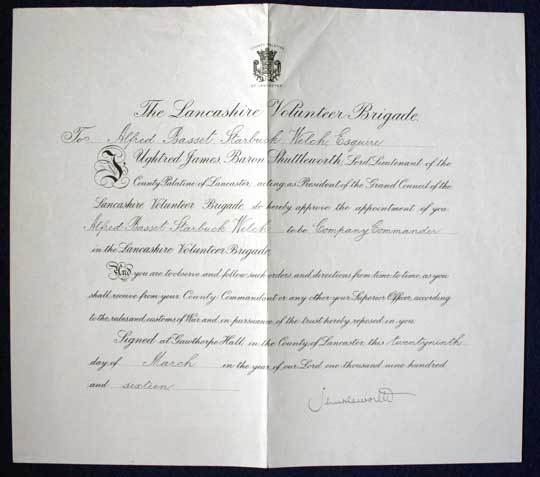 COUNTY PALATINE
OF LANCASTER
The Lancashire Volunteer Brigade.
To Alfred Basset Starbuck Welch, Esquire
I Ughtred James, Baron Shuttleworth, Lord Lieutenant of the
County Palatine of Lancaster, acting as President of the Grand Council of the
Lancashire Volunteer Brigade, do hereby approve the appointment of you
Alfred Basset Starbuck Welch to be Company Commander
in the Lancashire Volunteer Brigade.
And you are to observe and follow such orders and directions from time to time, as you
shall receive from your County Commandant or any other your Superior Officer, according
to the rules and customs of War and in pursuance of the trust hereby reposed in you.
Signed at Gawthorpe Hall, in the County of Lancaster this twentyninth
day of March in the year of our Lord one thousand nine hundred
and sixteen
Shuttleworth